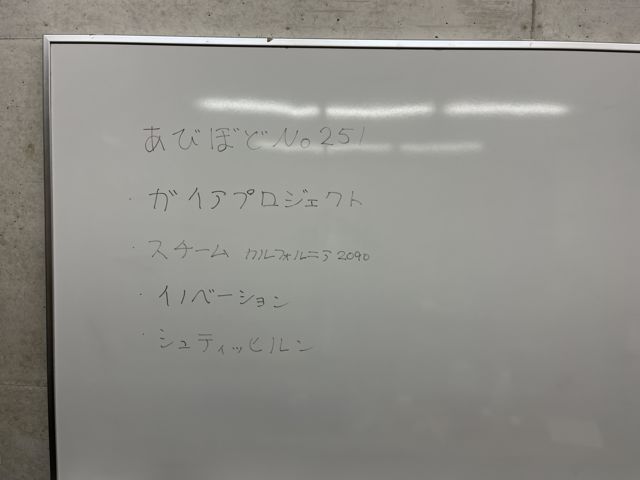 あびぼど No 251
・ガイアプロジェクト
・スチーム カルフォルニア 2090
・イノベーション
・シュティッヒルン